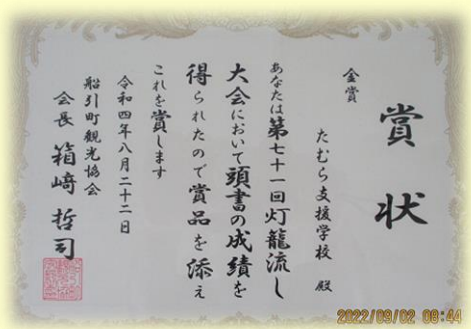 賞状
金賞
たむら支援学校 殿
あなたは第七十一回灯籠流し
大会において頭書の成績を
得られたので賞品を添え
これを賞します
令和四年八月二十二日
船引町観光協会
会長 箱﨑 哲司
2022/09/02 09:44